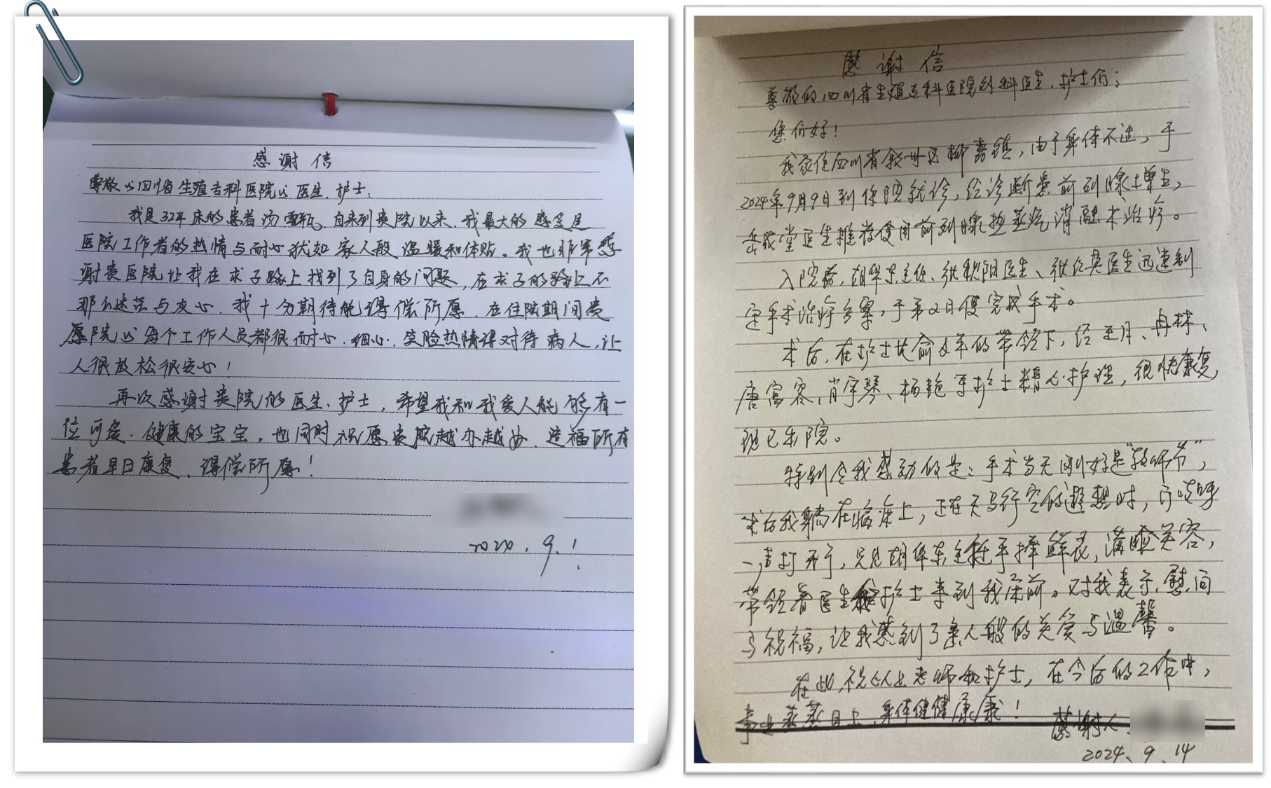 感谢信
尊敬的四川省生殖专科医院的医生、护士:
我是32床的患者汤雪瓶,自来到贵院以来,我最大的感受是
医院工作者的热情与耐心犹如家人般温暖和体贴。我也非常感
谢贵医院让我在求子路上找到了自身的问题,在求子的路上不
那么迷茫与灰心,我十分期待能得偿所愿,在住院期间贵
医院的每个工作人员都很耐心、细心,笑脸热情得对待病人,让
人很放松很安心!
再次感谢贵院的医生、护士,希望我和我爱人能够有一
位可爱、健康的宝宝,也同时祝愿贵院越办越好,造福所有
患者早日康复,得偿所愿!
9.1
感谢信
尊敬的四川省生殖专科医院外科医生、护士们;
您们好!
我家住四川省叙州区柳嘉镇,由于身体不适,于
2024年9月9日到保院就诊,经诊断患前列腺增生,
医生推荐使用前列腺热蒸汽消融术治疗。
入院后,胡华东主任、医生、医生迅速制
定手术治疗方案,于第2日便完成手术。
术后,在护士长俞文年的带领下,经王月、冉林、
唐富容、肖宇琴、杨艳等护士精心护理,很快康复,
现已出院。
特别令我感动的是:手术当天刚好是“教师节”,
术后我躺在病床上,正在天马行空的遐想时,门吱呼
一声打开了,只见胡华东主任手捧鲜花,满脸笑容,
带领着医生和护士来到我床前。对我表示慰问
与祝福,让我感到了亲人般的关爱与温馨。
在此,祝以上老师和护士,在今后的工作中,
事业蒸蒸日上,身体健健康康!
感谢人:
2024、9、14